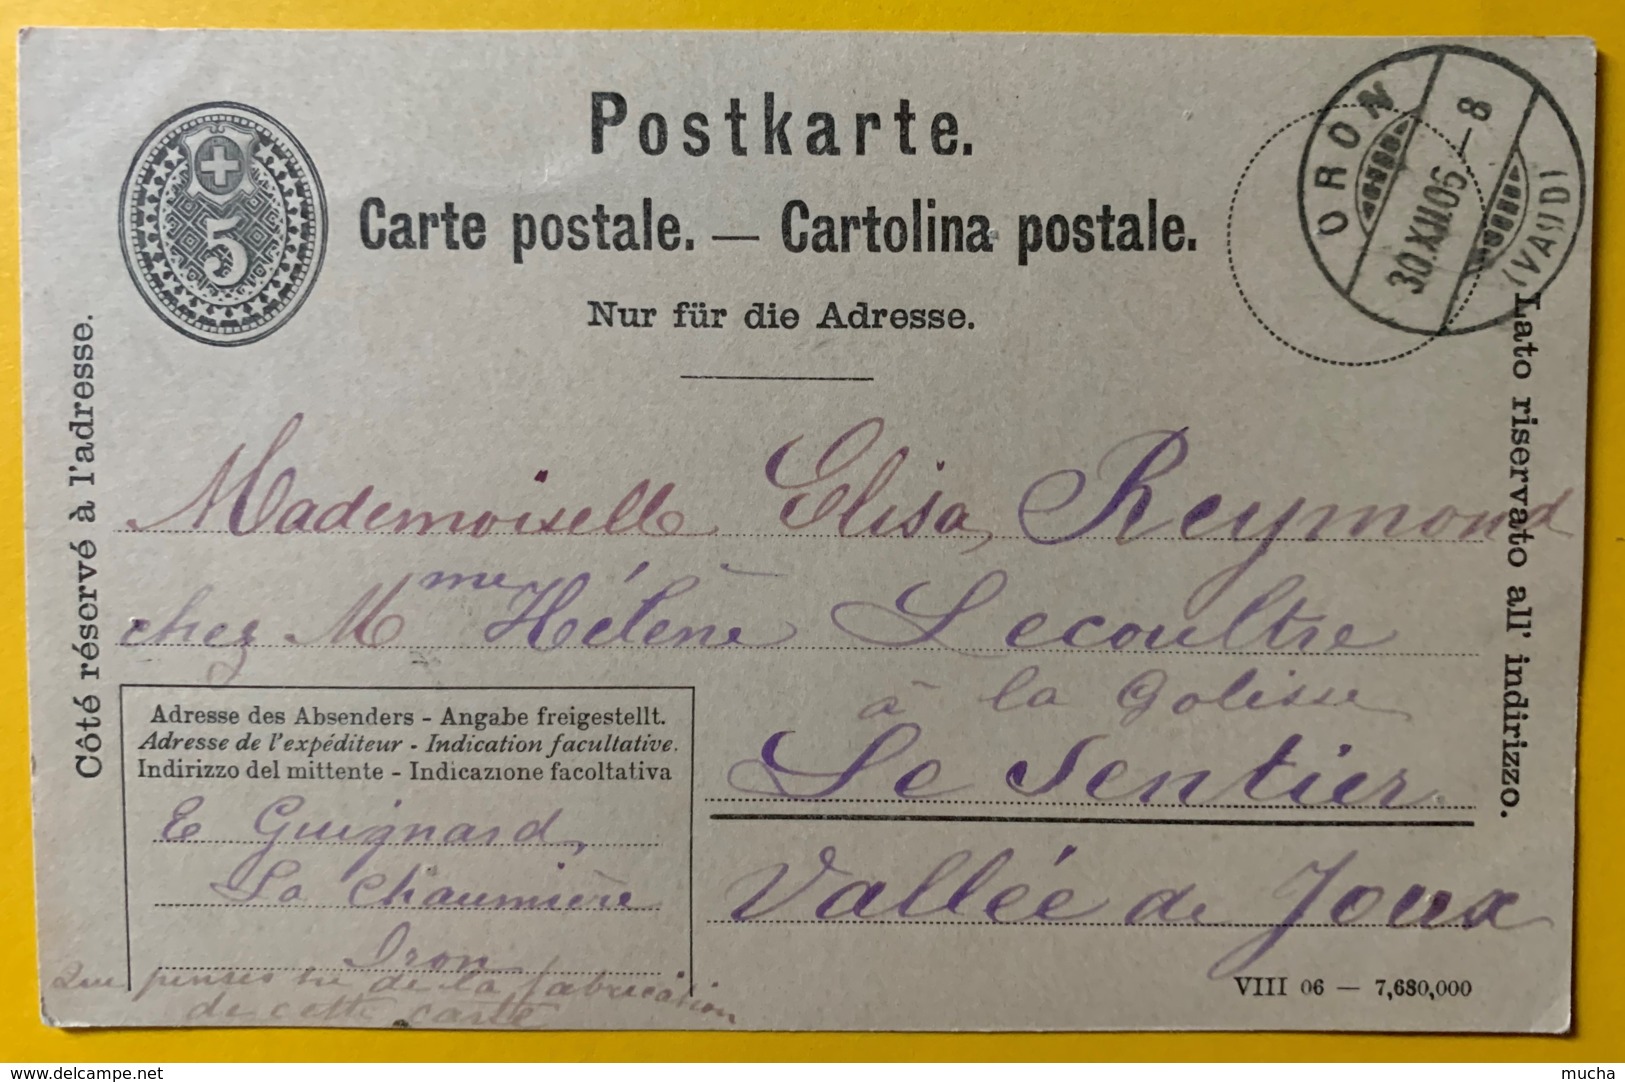 Postkarte.
Carte postale. — Cartolina postale.
Nur für die Adresse.
5
ORON
30.XII.06.–8
(VAUD)
Côté réservé à l'adresse.
Lato riservato all' indirizzo.
Mademoiselle Elisa Reymond
chez Mme Hélène Lecoultre
à la Golisse
Le Sentier
Vallée de Joux
Adresse des Absenders - Angabe freigestellt.
Adresse de l'expéditeur - Indication facultative.
Indirizzo del mittente - Indicazione facoltativa
E Guignard,
La Chaumière
Oron
Que penses tu de la fabrication
de cette carte
VIII 06 — 7,680,000
www.delcampe.net
mucha